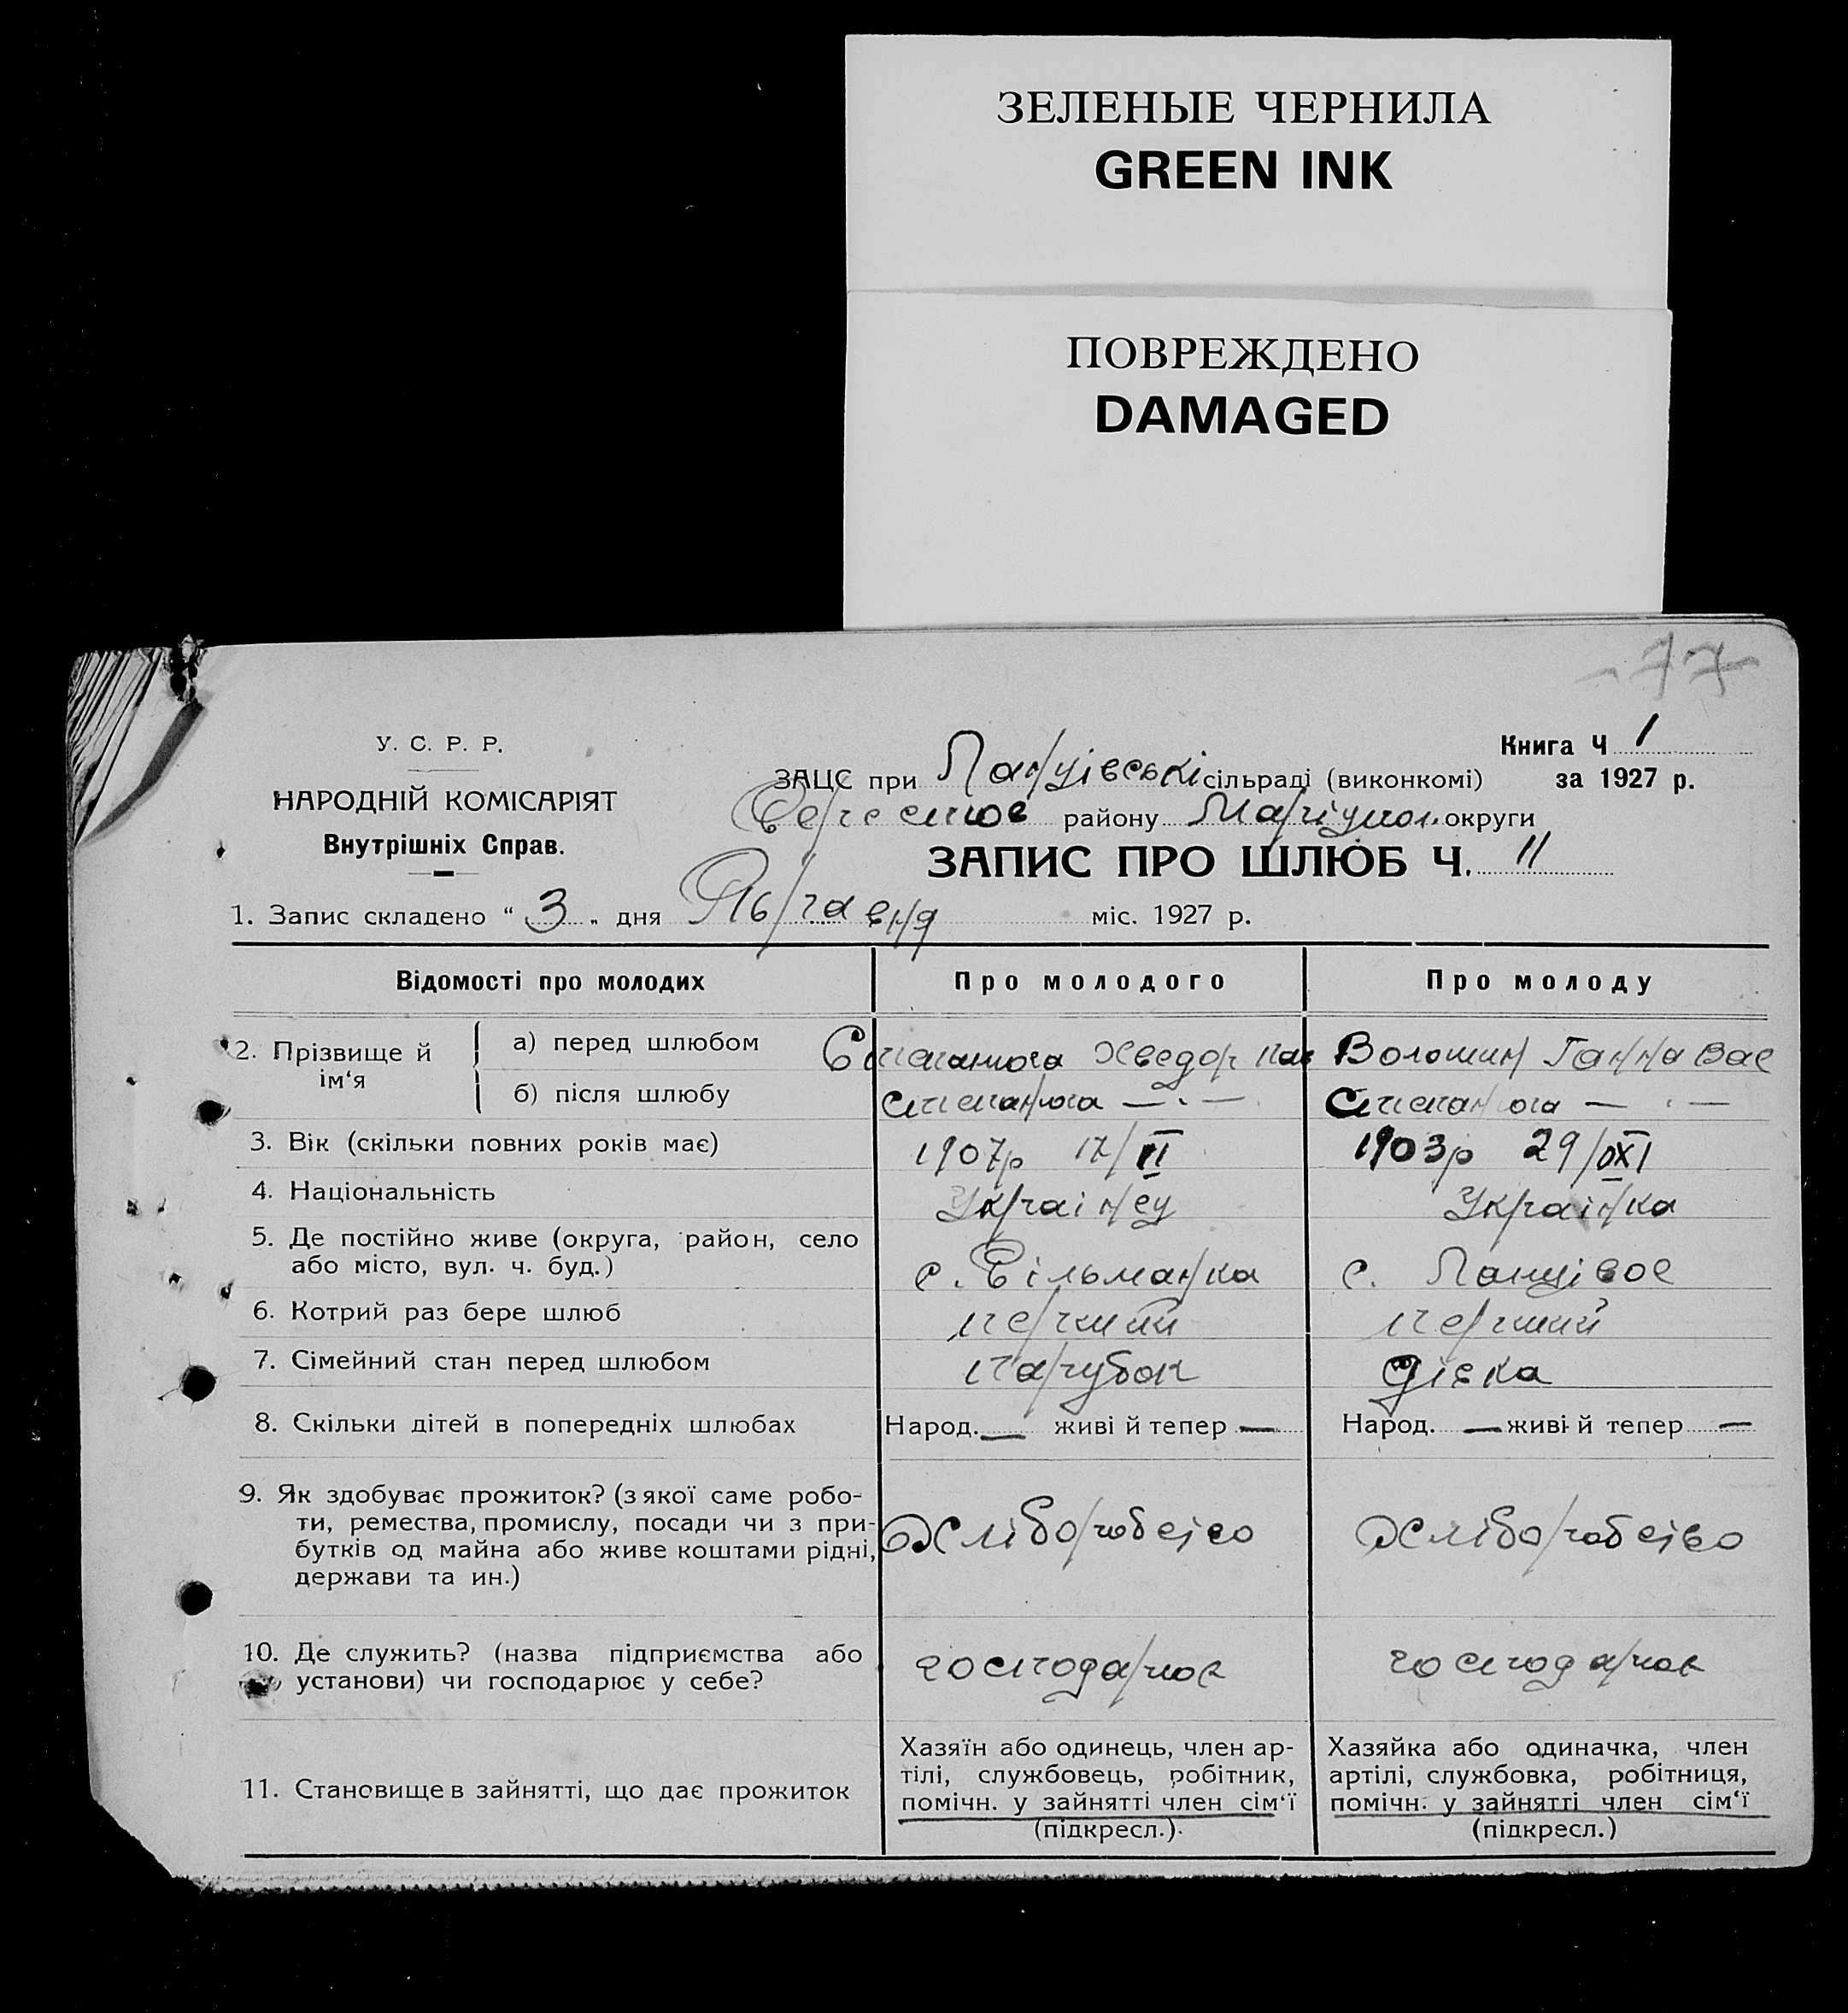 ЗЕЛЕНЫЕ ЧЕРНИЛА
GREEN INK
ПОВРЕЖДЕНО
DAMAGED
77
У. С. Р. Р.
НАРОДНІЙ КОМІСАРІЯТ
Внутрішніх Справ.
Книга Ч 1
за 1927 р.
ЗАЦС при Панцівські сільраді (виконкомі)
району Маріупол. округи
ЗАПИС ПРО ШЛЮБ Ч. 11
1. Запис складено “ 3 „ дня міс. 1927 р.
Відомості про молодих Про молодого Про молоду
2. Прізвище й ім‘я
а) перед шлюбом Хведор Пав Волошин Ганна Вас
б) після шлюбу — · — — · —
3. Вік (скільки повних років має) 1907р 17/II 1903р 29/XI
4. Національність Українец Українка
5. Де постійно живе (округа, район, село
або місто, вул. ч. буд.) с. Вільманка с. Панцівое
6. Котрий раз бере шлюб перший перший
7. Сімейний стан перед шлюбом парубок дівка
8. Скільки дітей в попередніх шлюбах Народ. — живі й тепер — Народ. — живі й тепер —
9. Як здобуває прожиток? (з якої саме робо-
ти, ремества, промислу, посади чи з при-
бутків од майна або живе коштами рідні,
держави та ин.)
Хліборобсіво Хліборобсіво
10. Де служить? (назва підприємства або
установи) чи господарює у себе?
господарпов господарпов
11. Становище в зайнятті, що дає прожиток
Хазяїн або одинець, член ар-
тілі, службовець, робітник,
помічн. у зайнятті член сім‘ї
(підкресл.).
Хазяйка або одиначка, член
артілі, службовка, робітниця,
помічн. у зайнятті член сім‘ї
(підкресл.)